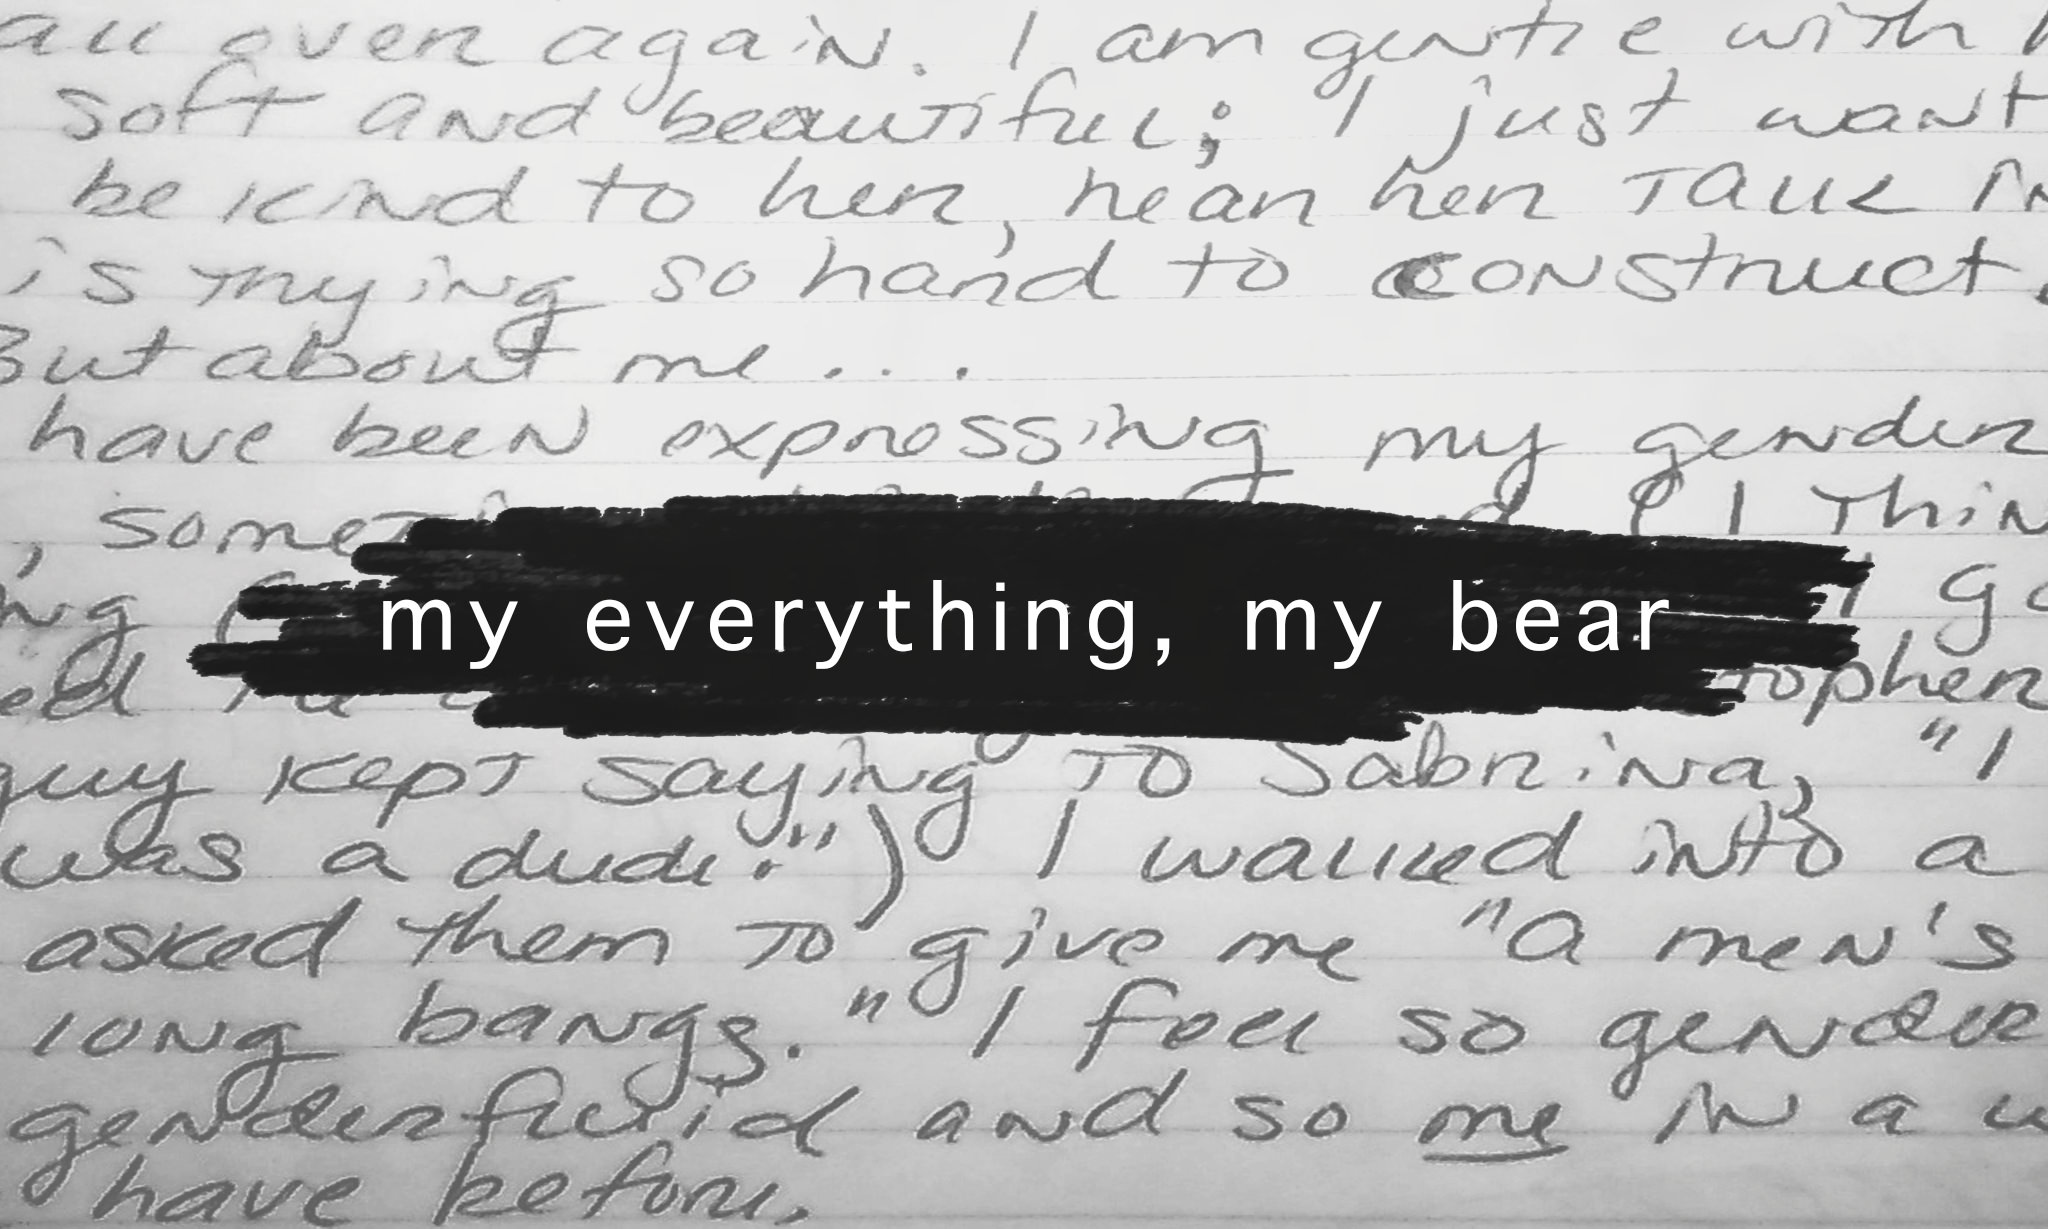 all over again. I am gentle with
soft and beautiful; I just want
be kind to her, hear her talk in
is trying so hard to construct.
But about me...
have been expressing my gender
, I thin
my everything, my bear
guy kept saying to Sabrina, "I
was a dude.") I walked into a
asked them to give me "a men's
long bangs." I feel so
genderfluid and so me in a
have before.